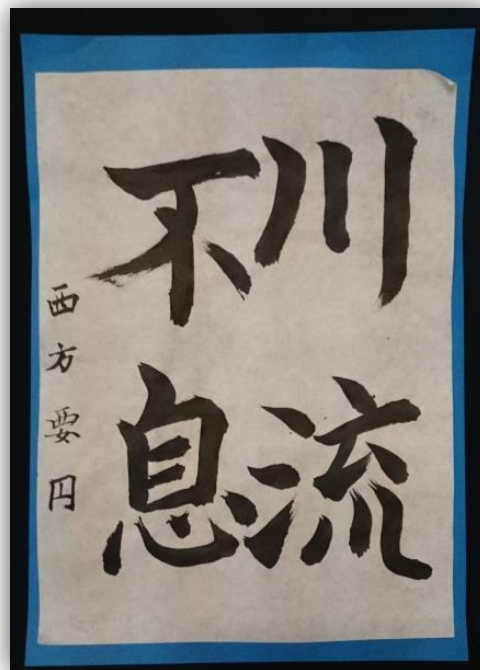 川流
不息
西方要円